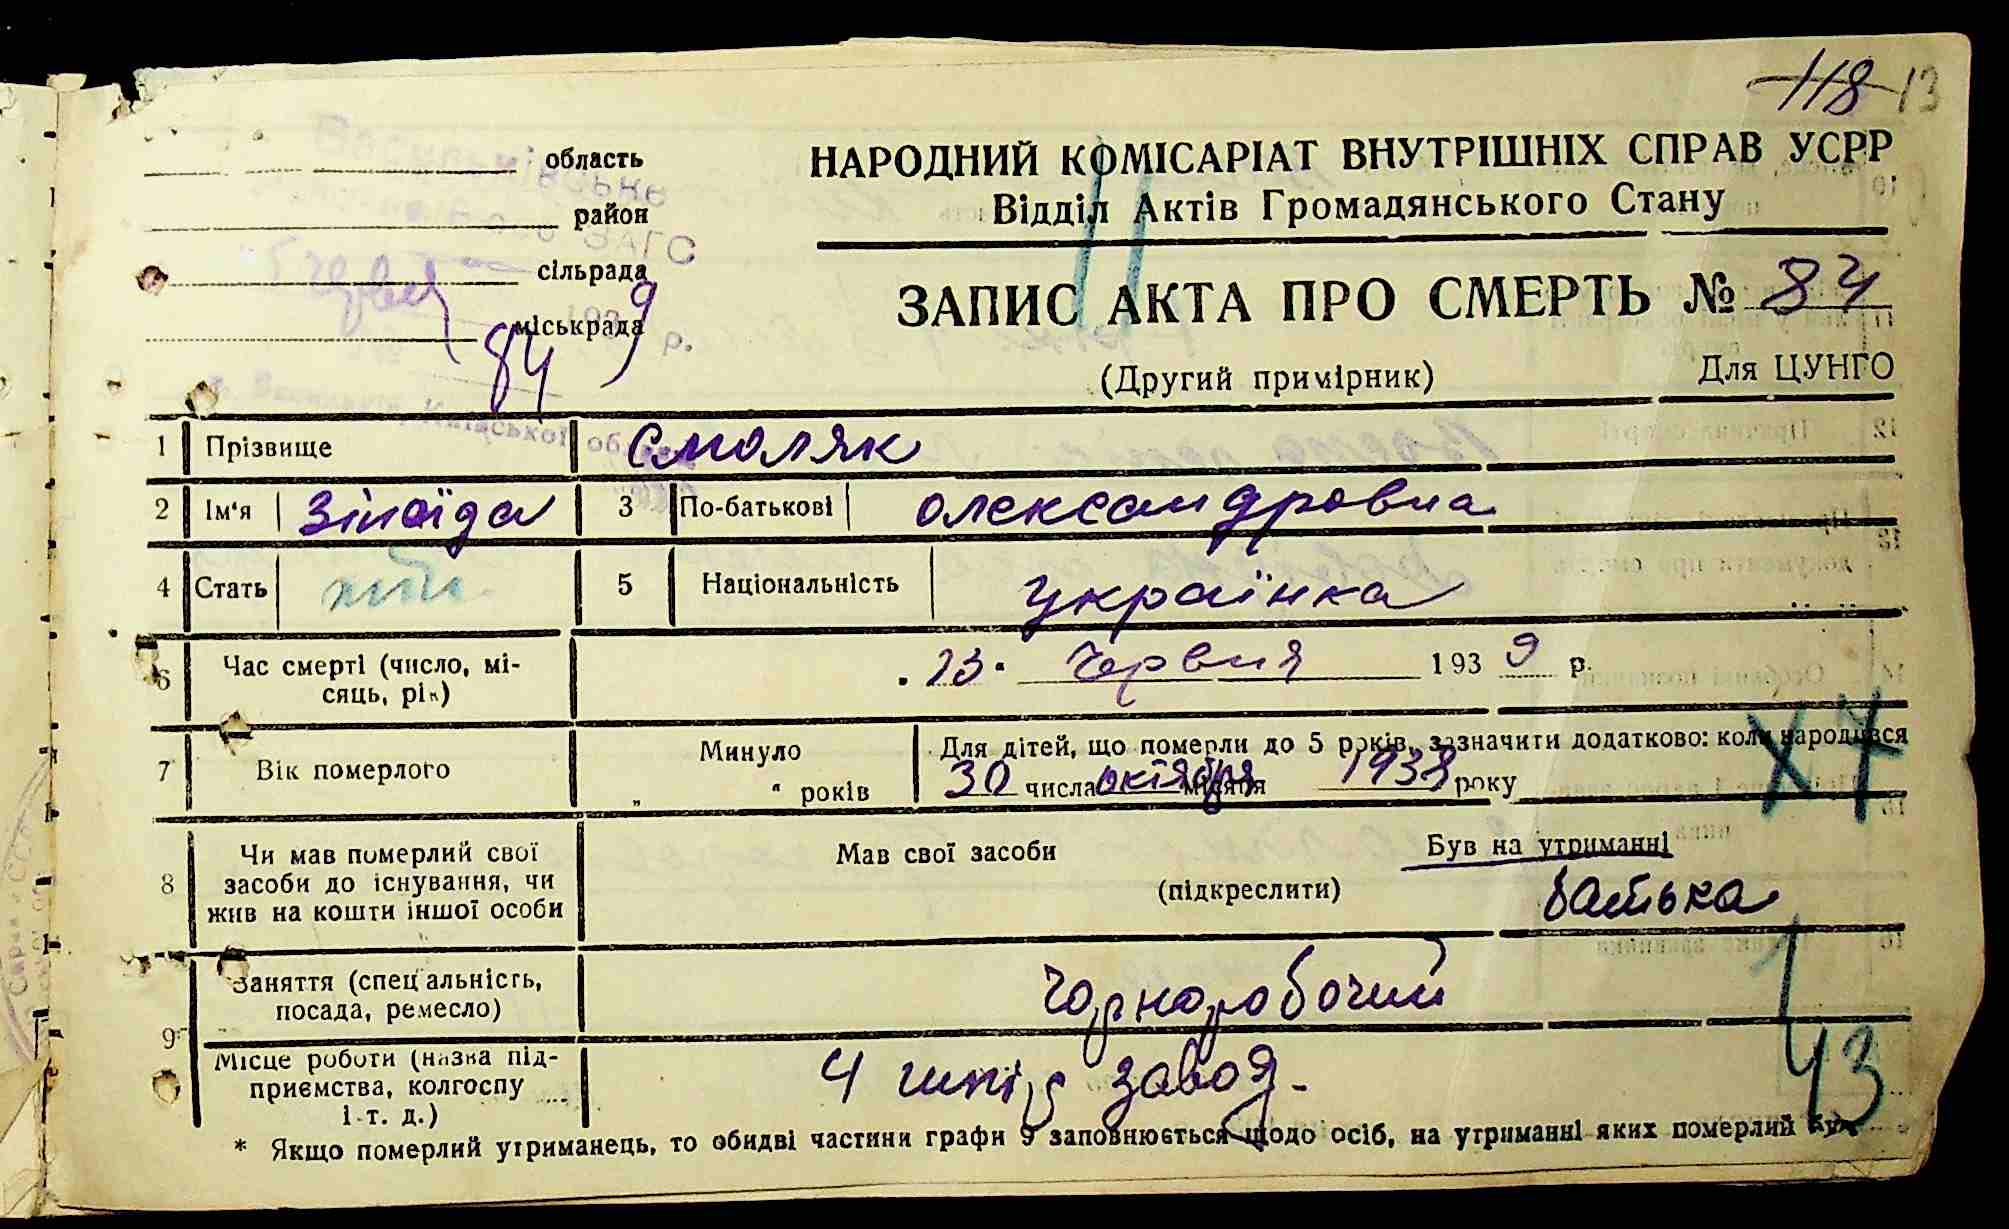 118 13
область
район
сільрада
міськрада
Васильківське
ЗАГС
червня
193 9 р.
84
НАРОДНИЙ КОМІСАРІАТ ВНУТРІШНІХ СПРАВ УСРР
Відділ Актів Громадянського Стану
ЗАПИС АКТА ПРО СМЕРТЬ № 84
(Другий примірник) Для ЦУНГО
1 Прізвище Смоляк
2 Ім'я Зіноїда 3 По-батькові Олександровна
4 Стать 5 Національність українка
6 Час смерті (число, мі-
сяць, рік) 23 червня 1939 р.
7 Вік померлого Минуло
„ “ років
Для дітей, що померли до 5 років, зазначити додатково: коли народився
30 числа октября місяця 1938 року
Х 4
8 Чи мав померлий свої
засоби до існування, чи
жив на кошти іншої особи
Мав свої засоби Був на утриманні
(підкреслити) батька
9 Заняття (спеціальність,
посада, ремесло) Чорноробочий
1
Місце роботи (назва під-
приємства, колгоспу
і т. д.) 4 шкір завод.
43
* Якщо померлий утриманець, то обидві частини графи 9 заповнюється щодо осіб, на утриманні яких померлий був